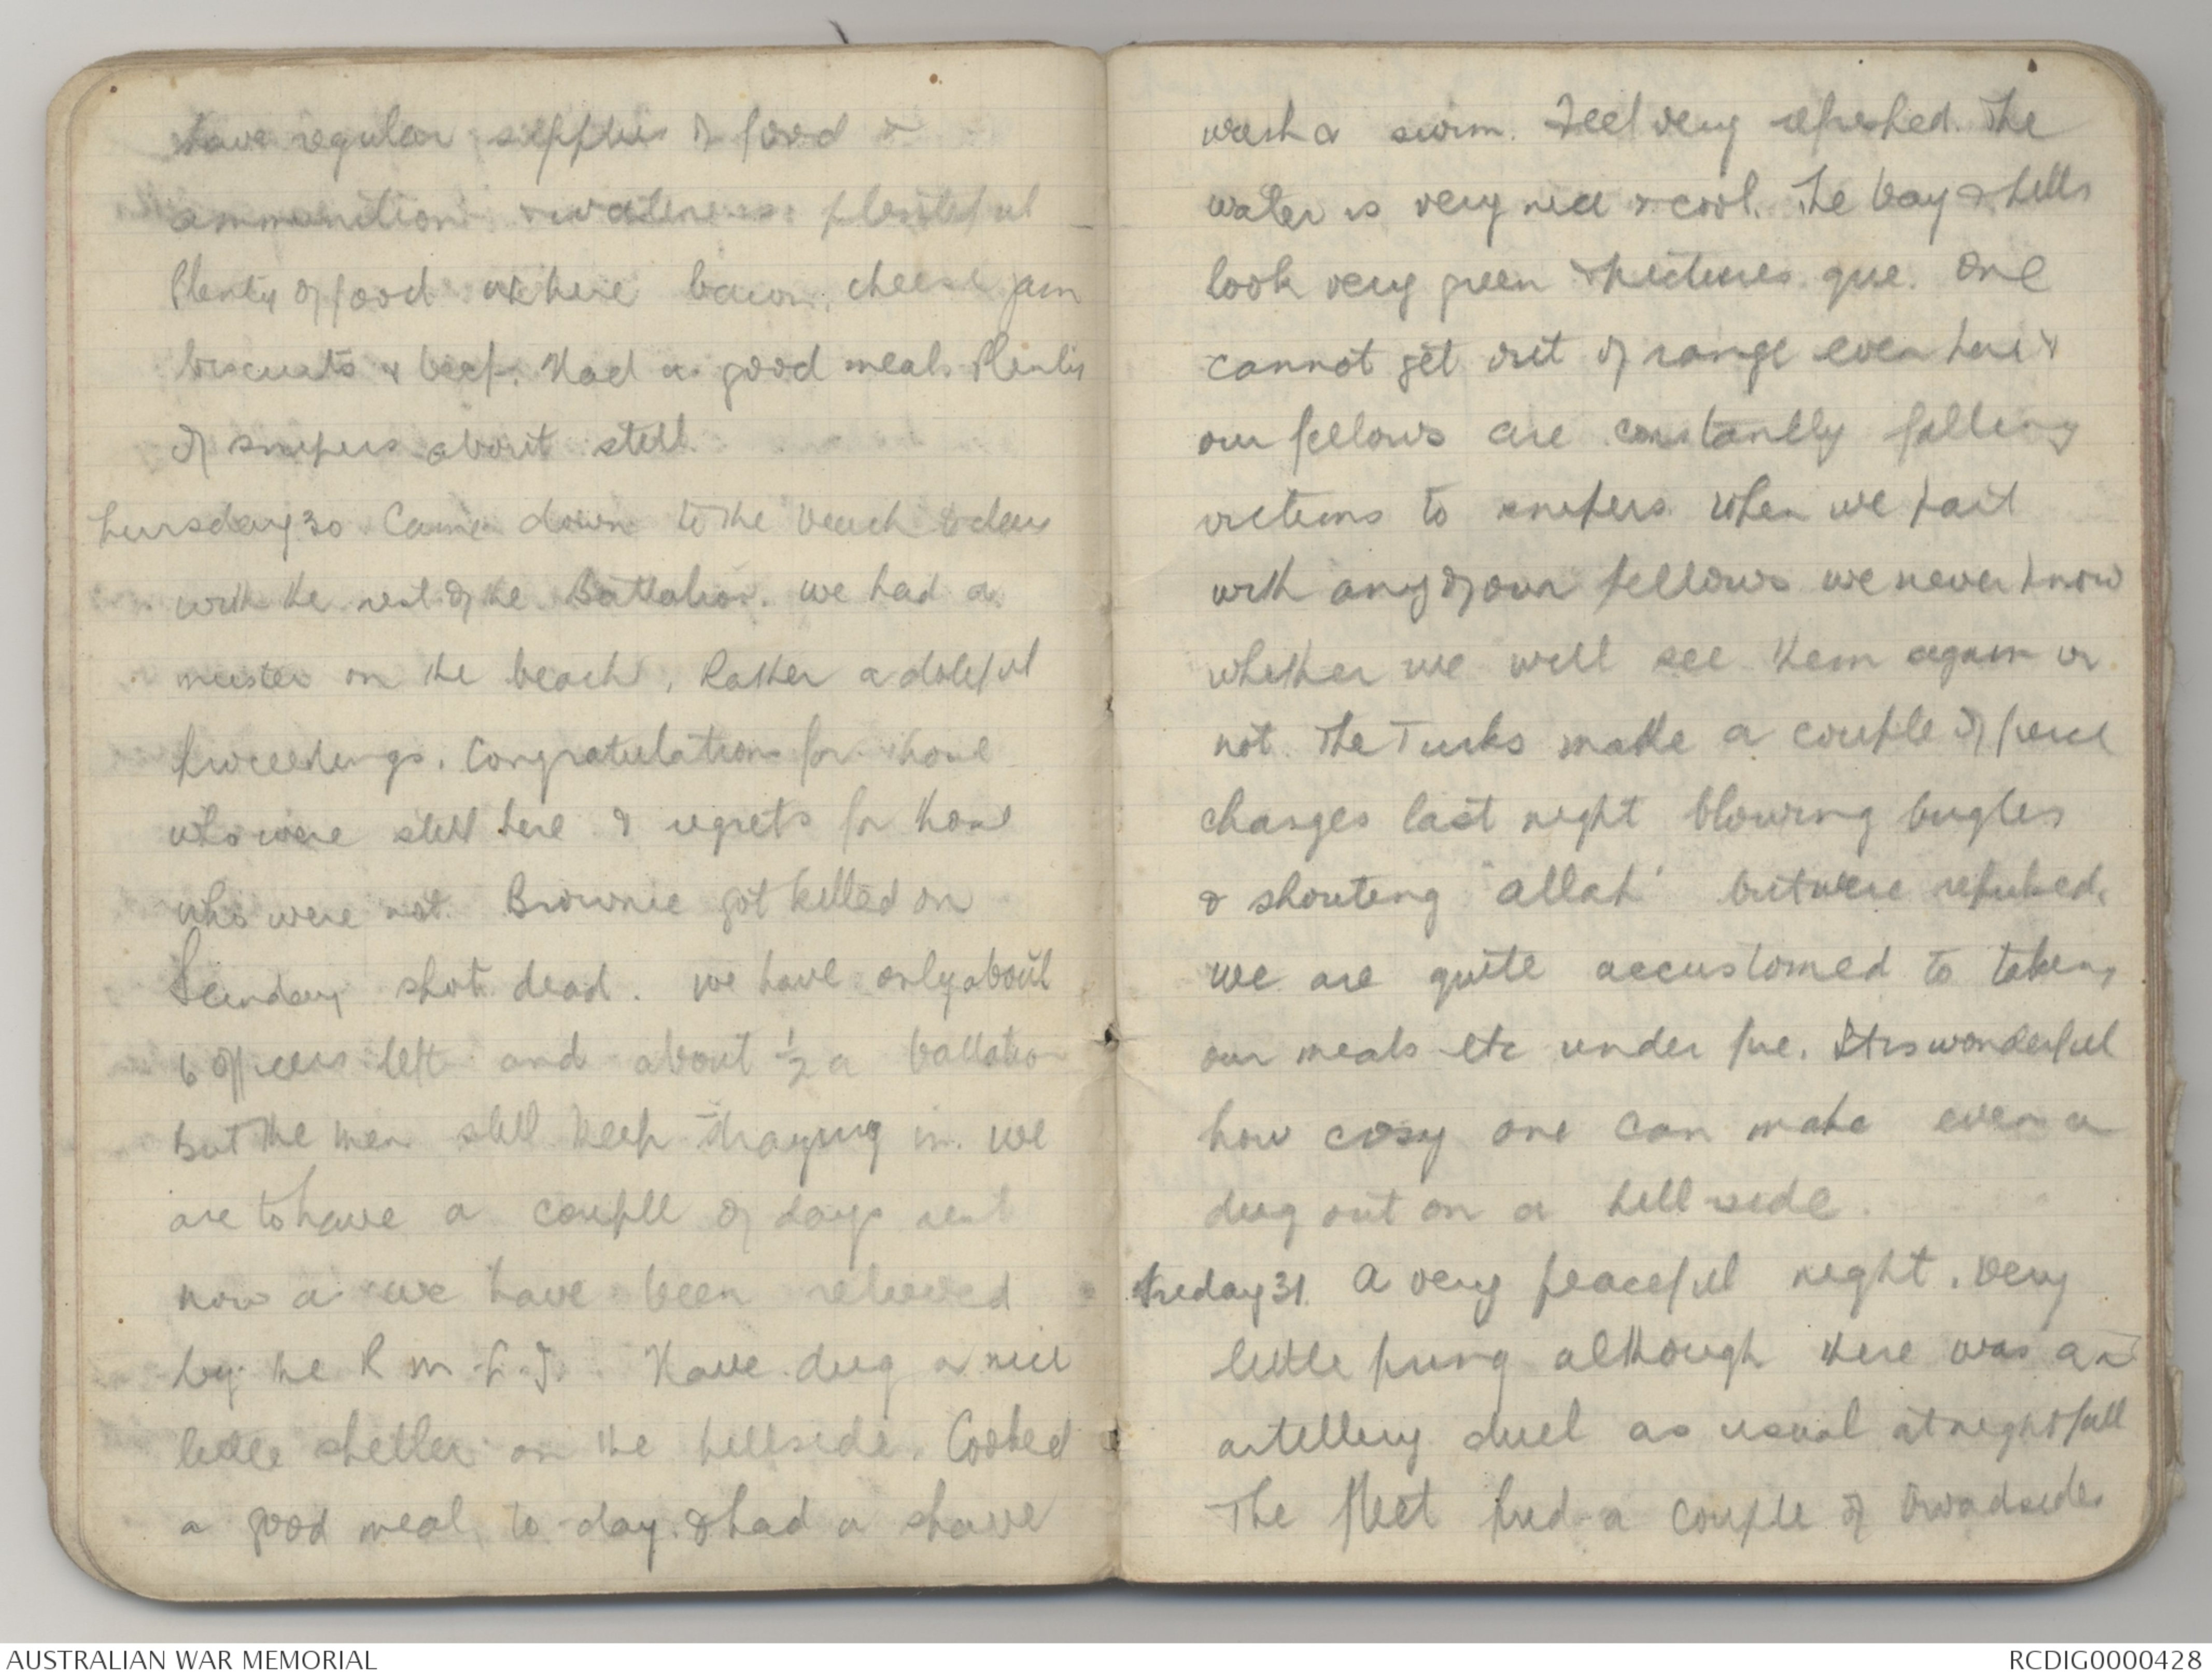 Have regular supplies of food &
ammunition & water is plentiful
Plenty of food where bacon, cheese jam
biscuits & beef. Had a good meal. Plenty
of snipers about still.
Thursday 30 Came down to the beach today
with the rest of the Battalion. We had a
muster on the beach, Rather a doleful
proceedings. Congratulations for those
who were still here & regrets for those
who were not. Brownie got killed on
Sunday shot dead. We have only about
6 officers left and about ½ a battalion
But the men still keep straying in. We
are to have a couple of days rest
now as we have been relieved
by the R M L I. Have dug a nice
little shelter on the hillside. Cooked
a good meal to-day & had a shave
wash & swim. Feel very refreshed. The
water is very nice & cool. The bay & hills
look very green & picturesque. One
cannot get out of range even here &
our fellows are constantly falling
victims to snipers. When we part
with any of our fellows we never know
whether we will see them again or
not. The Turks made a couple of fierce
charges last night blowing bugles
& shouting "Allah" but were repulsed.
We are quite accustomed to taking
our meals etc under fire. It is wonderful
how cosy one can make even a
dug out on a hill side.
Friday 31. A very peaceful night. Very
little firing although there was an
artillery duel as usual at nightfall
The fleet fired a couple of broadsides
AUSTRALIAN WAR MEMORIAL
RCDIG0000428